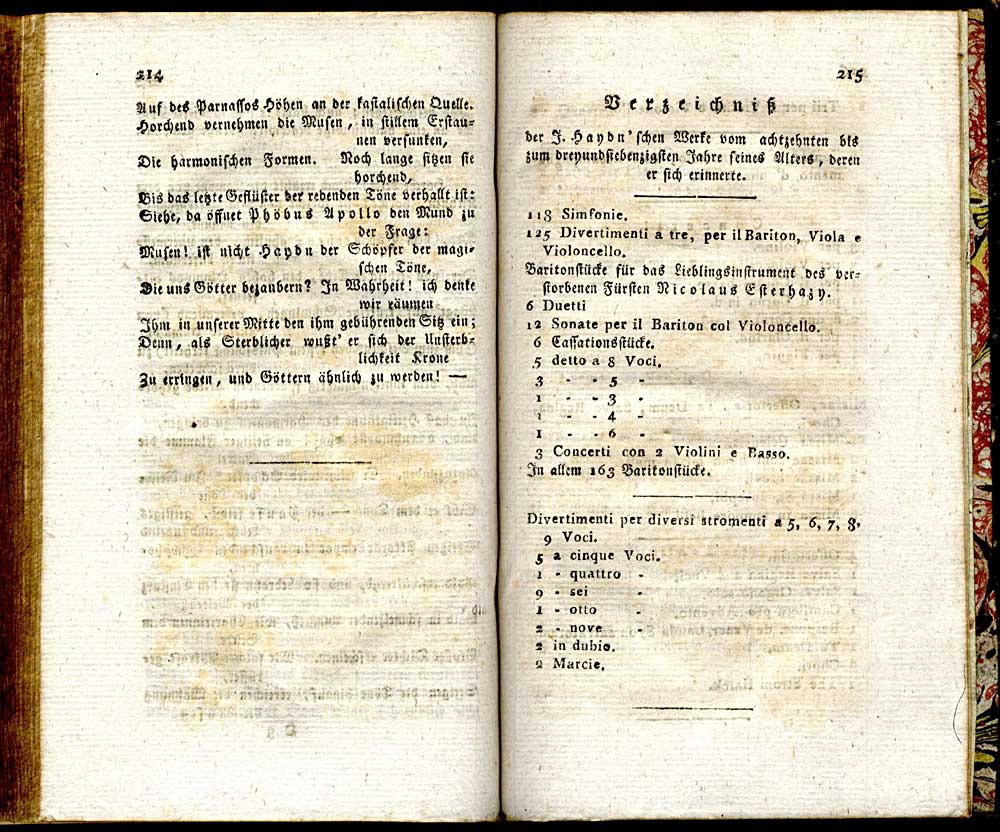 214
Auf des Parnassos Höhen an der kastalischen Quelle.
Horchend vernehmen die Musen, in stillem Erstau-
nen versunken,
Die harmonischen Formen. Noch lange sitzen sie
horchend,
Bis das letzte Geflüster der redenden Töne verhallt ist:
Siehe, da öffnet Phöbus Apollo den Mund zu
der Frage:
Musen! ist nicht Haydn der Schöpfer der magi-
schen Töne,
Die uns Götter bezaubern? In Wahrheit! ich denke
wir räumen
Ihm in unserer Mitte den ihm gebührenden Sitz ein;
Denn, als Sterblicher wußt' er sich der Unsterb-
lichkeit Krone
Zu erringen, und Göttern ähnlich zu werden! —
215
Verzeichniß
der J. Haydn'schen Werke vom achtzehnten bis
zum dreyundsiebenzigsten Jahre seines Alters, deren
er sich erinnerte.
118 Simfonie.
125 Divertimenti a tre, per il Bariton, Viola e
Violoncello.
Baritonstücke für das Lieblingsinstrument des ver-
storbenen Fürsten Nicolaus Esterhazy.
6 Duetti
12 Sonate per il Bariton col Violoncello.
6 Cassationsstücke.
5 detto a 8 Voci.
3 - - 5 -
1 - - 3 -
1 - - 4 -
1 - - 6 -
3 Concerti con 2 Violini e Basso.
In allem 163 Baritonstücke.
Divertimenti per diversi stromenti a 5, 6, 7, 8,
9 Voci.
5 a cinque Voci.
1 - quattro -
9 - sei -
1 - otto -
2 - nove -
2 in dubio.
2 Marcie.